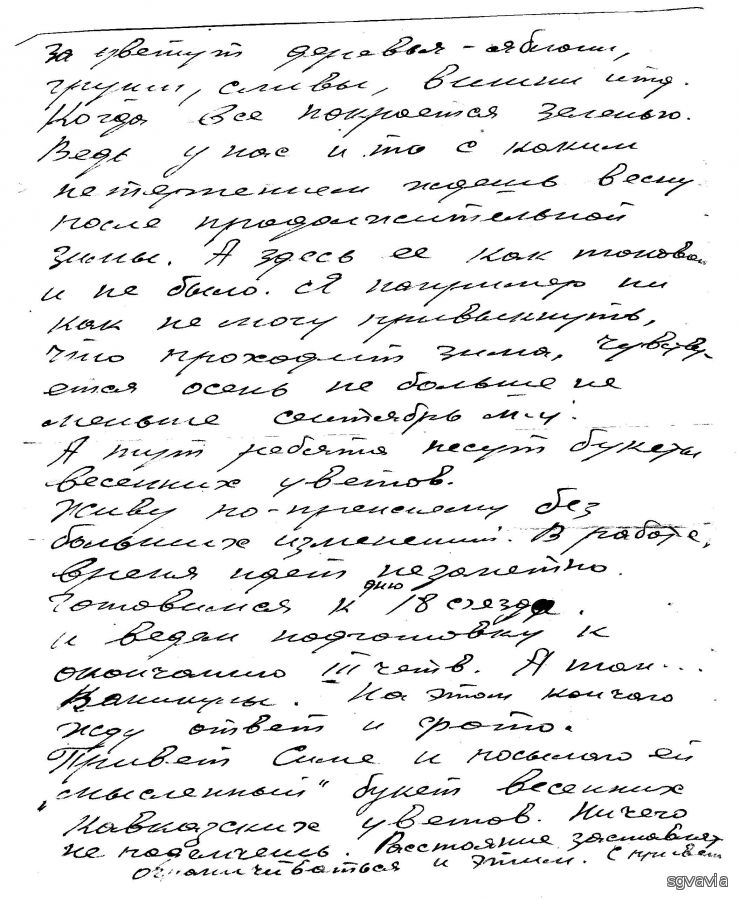 за цветут деревья - яблони,
груши, сливы, вишни итд.
Когда все покроется зеленью.
Ведь у нас и то с каким
нетерпением ждешь весну
после продолжительной
зимы. А здесь ее как таковой
и не было. Я например ни
как не могу привыкнуть,
что проходит зима, чувству-
ется осень не больше не
меньше сентябрь м-ц.
А тут ребята несут букеты
весенних цветов.
Живу по-прежнему без
больших изменений. В работе,
время идет незаметно.
Готовимся к дню 18 съезда.
и ведем подготовку к
окончанию III четв. А там...
Каникулы. На этом кончаю
жду ответ и фото.
Привет Симе и посылаю ей
„мысленный" букет весенних
Кавказских цветов. Ничего
не поделаешь. Расстояние заставляет
ограничиваться и этим. С приветом
sgvavia